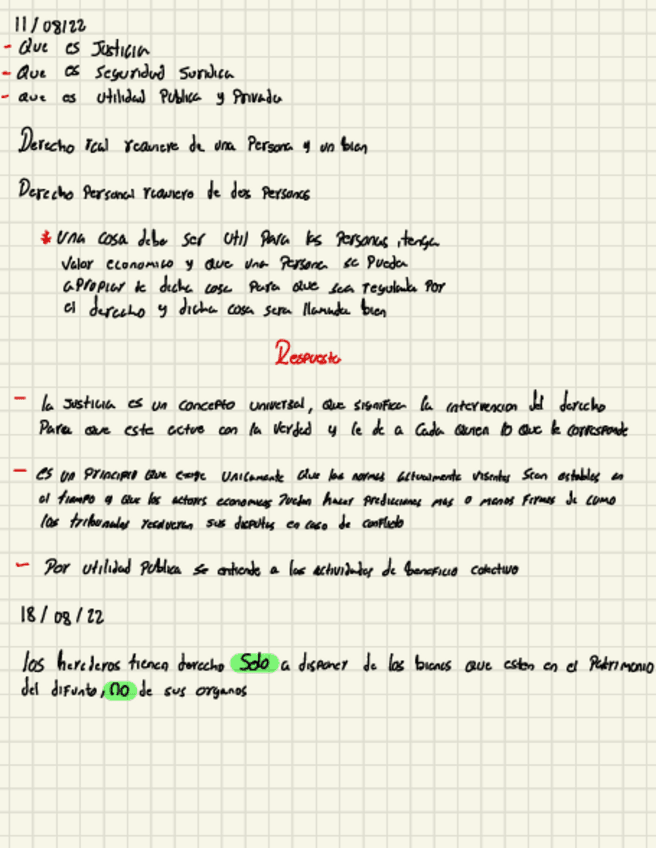 11/08/22
- Que es Justicia
- Que es Seguridad Juridica
- que es utilidad Publica y Privada
Derecho real requiere de una Persona y un bien
Derecho Personal requiere de dos Personas
* Una cosa debe ser util Para las Personas, tenga
valor economico y que una Persona se Pueda
apropiar de dicha cosa Para que sea regulada Por
el derecho y dicha cosa sera llamada bien
Respuesta
- la Justicia es un concepto universal, que significa la intervencion del derecho
Para que este actue con la verdad y le de a cada quien lo que le corresponde
- es un Principio que exige unicamente que las normas actualmente visentes sean estables en
el tiempo y que los actores economicos Puedan hacer predicciones mas o menos firmes de como
los tribunales resolveran sus disputas en caso de conflicto
- Por utilidad Publica se entiende a las actividades de beneficio colectivo
18/08/22
los herederos tienen derecho Solo a disponer de los bienes que esten en el Patrimonio
del difunto, no de sus organos